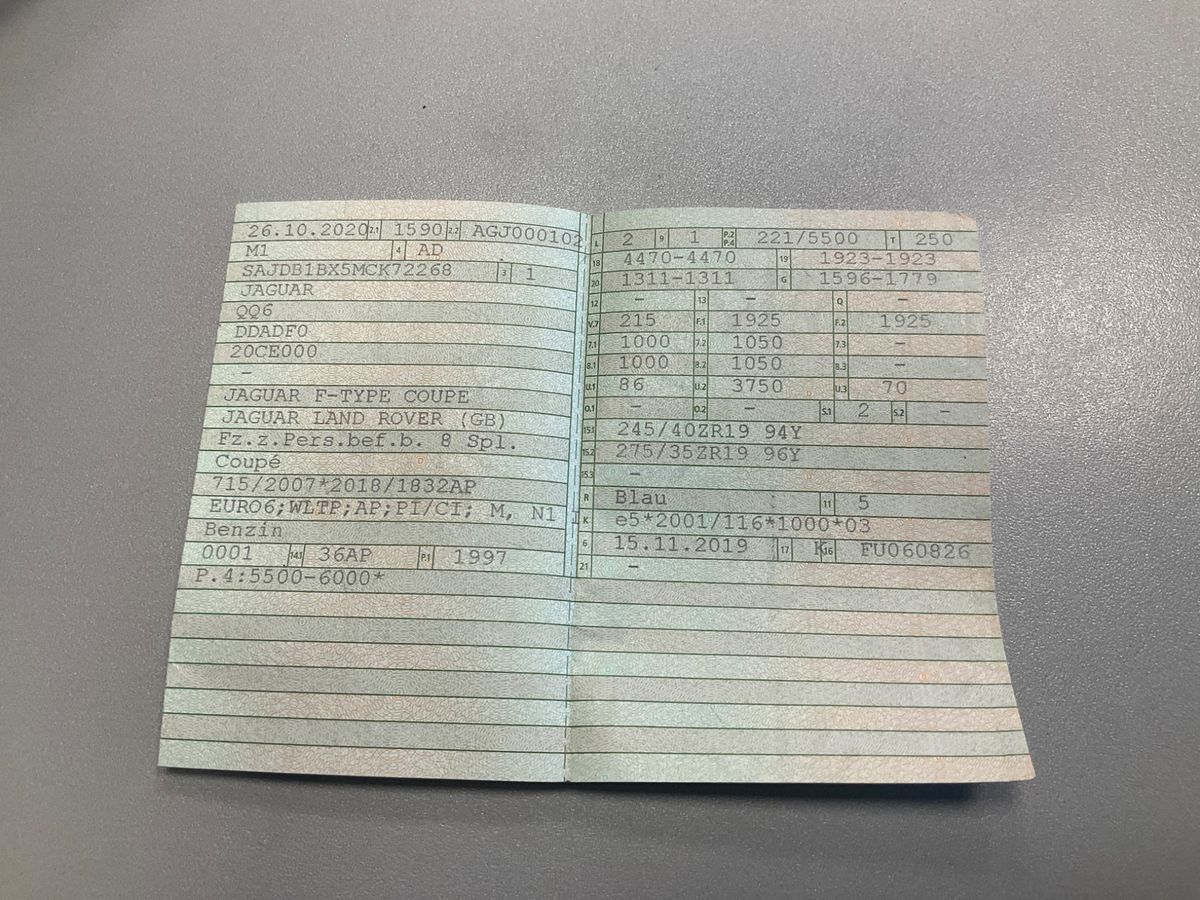 26.10.2020 2.1 1590 2.2 AGJ000102
M1 4 AD
SAJDB1BX5MCK72268 3 1
JAGUAR
QQ6
DDADF0
20CE000
–
JAGUAR F-TYPE COUPE
JAGUAR LAND ROVER (GB)
Fz.z.Pers.bef.b. 8 Spl.
Coupé
715/2007*2018/1832AP
EURO6;WLTP;AP;PI/CI; M, N1 I
Benzin
0001 14.1 36AP P.1 1997
P.4:5500-6000*
L 2 9 1 P.2 P.4 221/5500 T 250
18 4470-4470 19 1923-1923
20 1311-1311 G 1596-1779
12 – 13 – Q –
V.7 215 F.1 1925 F.2 1925
7.1 1000 7.2 1050 7.3 –
8.1 1000 8.2 1050 8.3 –
U.1 86 U.2 3750 U.3 70
O.1 – O.2 – S.1 2 S.2 –
15.1 245/40ZR19 94Y
15.2 275/35ZR19 96Y
15.3 –
R Blau 11 5
K e5*2001/116*1000*03
6 15.11.2019 17 K 16 FU060826
21 –